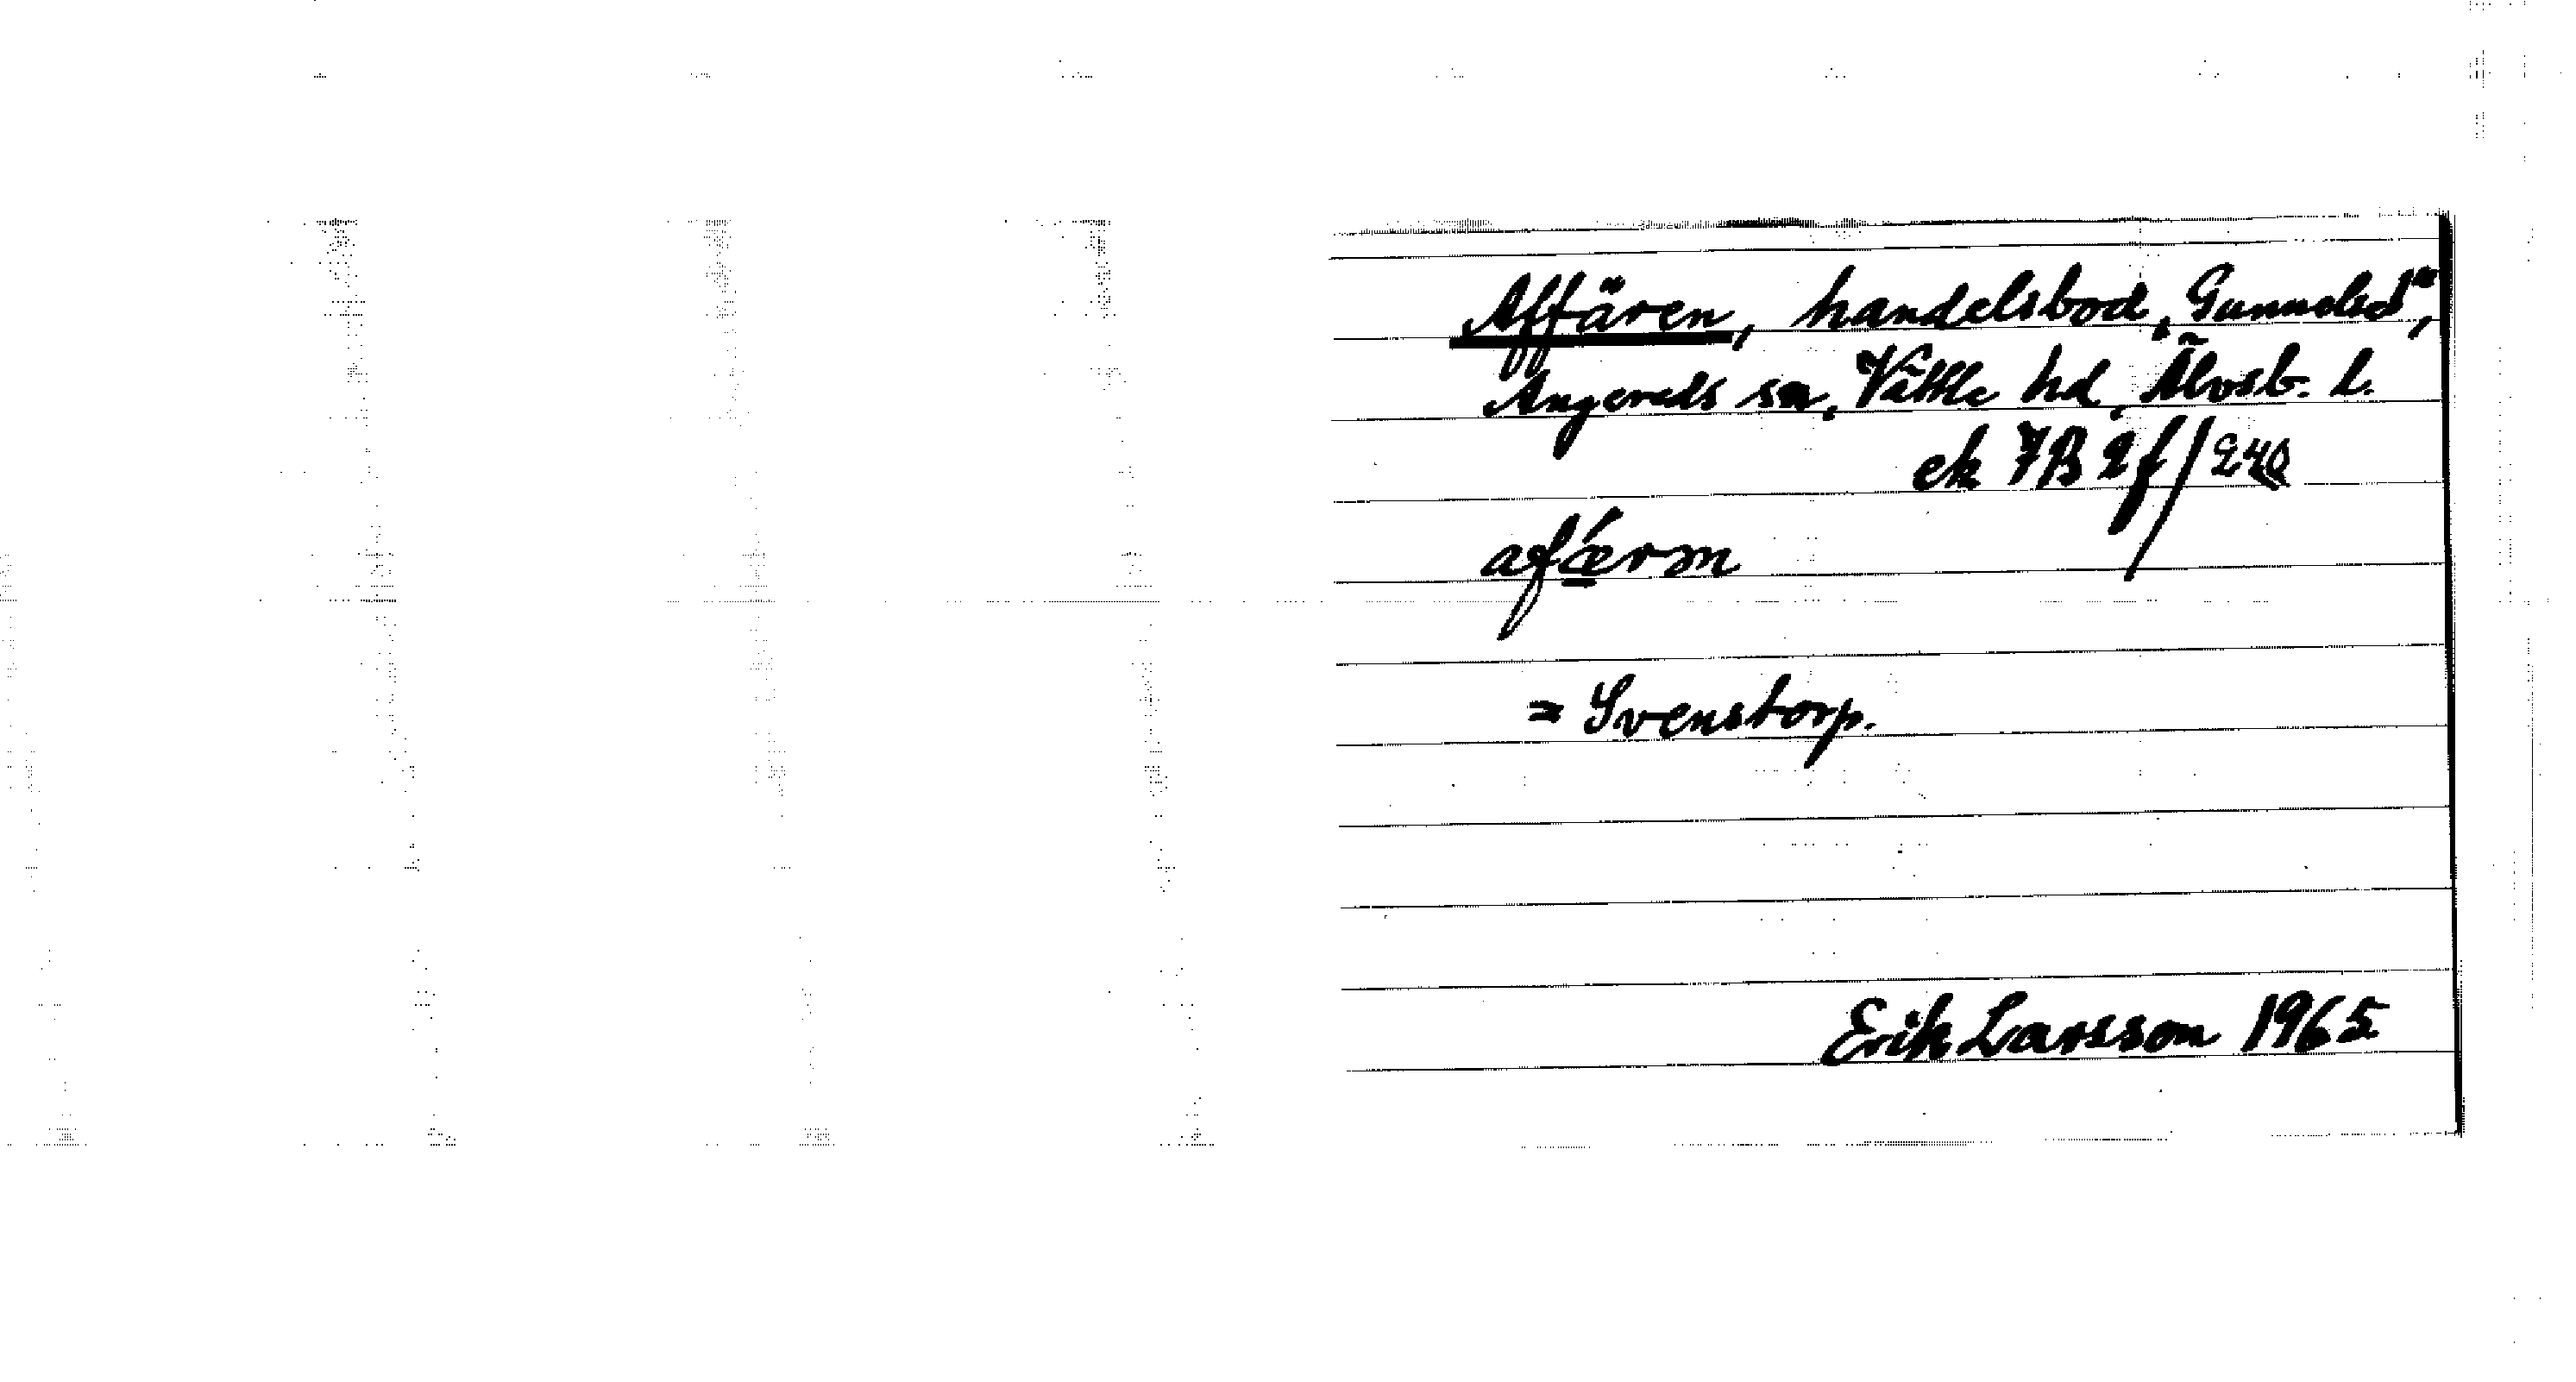 Affären, handelsbod, Gunnelse 1⁴,
Angereds sn, Vättle hd, Älvsb. l.
ek 7B 2f/240
afǽrən
= Svenstorp.
Erik Larsson 1965